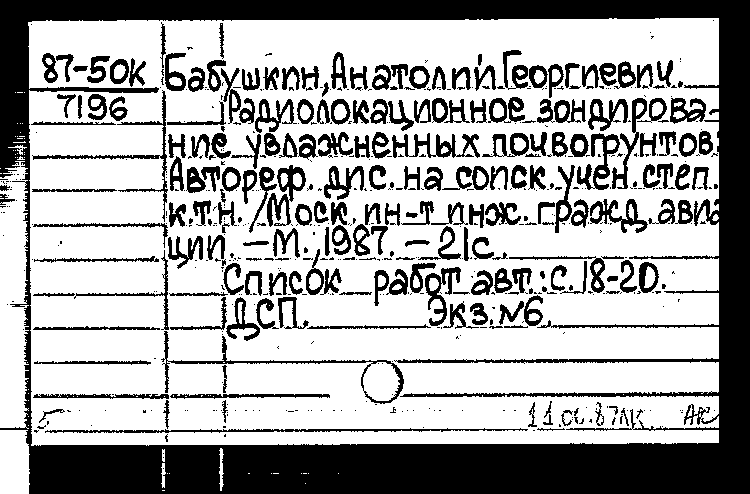 87-50К Бабушкин, Анатолий Георгиевич.
7196 Радиолокационное зондирова-
ние увлажненных почвогрунтов:
Автореф. дис. на соиск. учен. степ.
к.т.н. /Моск. ин-т инж. гражд. авиа
ции. – М., 1987. – 21с.
Список работ авт.: с. 18-20.
ДСП. Экз. №6.
5 11.06.87ЛК